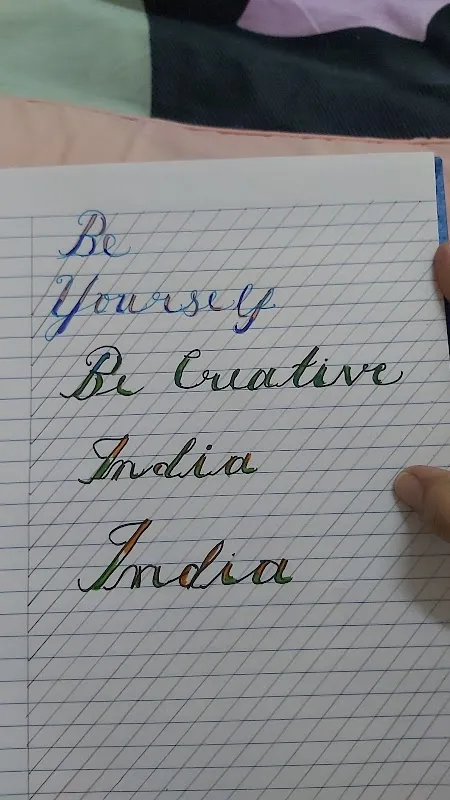 Be
Yourself
Be Creative
India
India